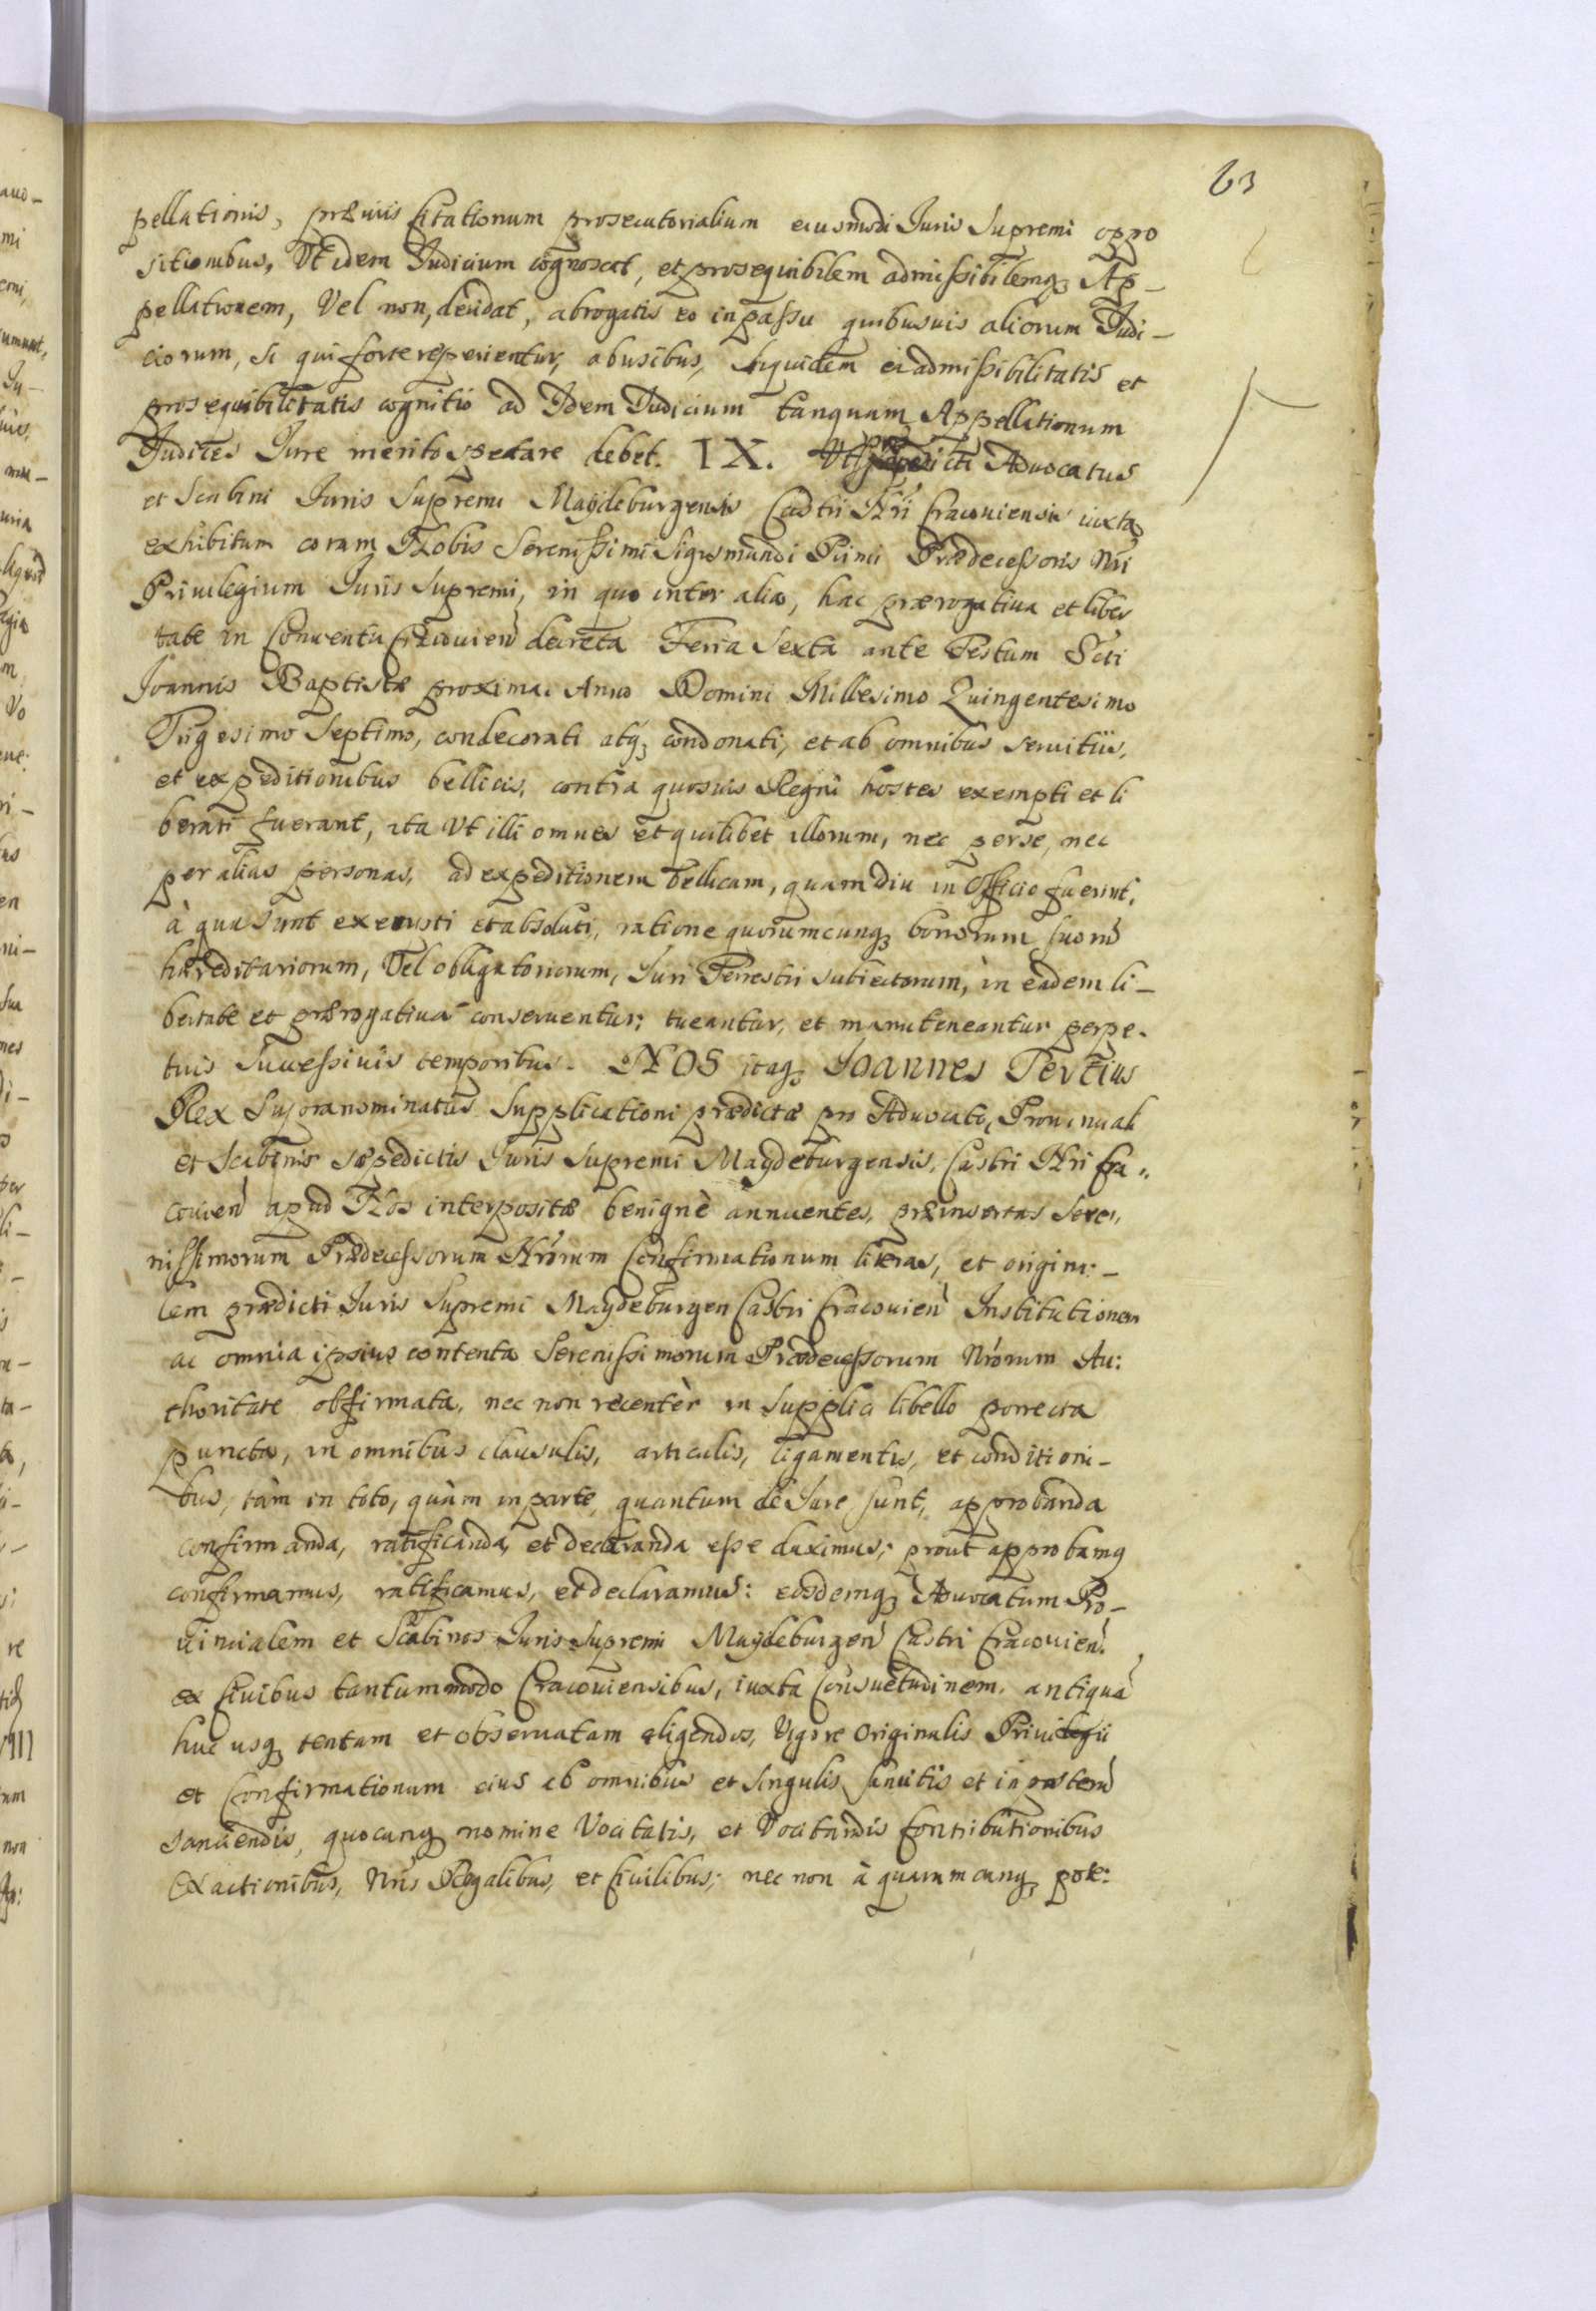 63
pellationis, præuiis Citationum prosecutorialium eiusmodi Juris Supremi oppo
sitionibus, Vt idem Judicium cognoscat, et prosequibilem admissibilemq3 Ap-
pellationem, Vel non, decidat, abrogatis eo in passu quibusuis aliorum Judi-
ciorum, si qui forte reperientur, abusibus, siquidem ei admissibilitatis et
prosequibilitatis cognitio ad Idem Judicium tanquam Appellationum
Judices Jure merito spectare debet. IX. Vt Advocatus
et Scabini Juris Supremi Magdeburgensis Castri Nri Cracouiensis iuxta
exhibitum coram Nobis Serenissimi Sigismundi Primi Prædecessoris Nri
Priuilegium Juris Supremi, in quo inter alia, hac prærogatiua et liber
tate in Conuentu Cracouien decreta Feria Sexta ante Festum Scti
Joannis Baptistæ proxima. Anno Domini Millesimo Quingentesimo
Trigesimo Septimo, condecorati atq3 condonati, et ab omnibus seruitiis,
et expeditionibus bellicis, contra quosuis Regni hostes exempti et li
berati fuerant, ita Vt illi omnes et quilibet illorum, nec per se, nec
per alias personas, ad expeditionem bellicam, quamdiu in Officio fuerint,
à qua sunt exempti et absoluti, ratione quorumcunq3 bonorum suorū
hæreditariorum, Vel obligatoriorum, Juri Terrestri subiectorum, in eadem li-
bertate et prærogatiua conseruentur, tueantur, et manuteneantur perpe-
tuis successiuis temporibus. NOS itaq3 Joannes Tertius
Rex Supranominatus Supplicationi prædictæ pro Aduocato, Prouinciali
et Scabinis sæpedictis Juris Supremi Magdeburgensis, Castri Nri Cra:
couien apud Nos interpositæ benignè annuentes, præinsertas Sere:
nissimorum Prædecessorum Nrorum Confirmationum literas, et origina:-
lem prædicti Juris Supremi Magdeburgen Castri Cracouien Institutionem
ac omnia ipsius contenta Serenissimorum Prædecessorum Nrorum Au:
thoritate obfirmata, nec non recentèr in supplici libello porrecta
puncta, in omnibus clausulis, articulis, ligamentis, et conditioni-
bus, tàm in toto, quàm in parte, quantum de Jure sunt, approbanda
confirmanda, ratificanda, et declaranda esse duximus; prout approbamq
confirmamus, ratificamus, et declaramus: eosdemq3 Aduocatum Pro-
uincialem et Scabinos Juris Supremi Magdeburgen Castri Cracouien.
ex Ciuibus tantummodo Cracouiensibus, iuxta Consuetudinem antiquā
huc usq3 tentam et obseruatam eligendos, Vigore Originalis Priuilegii
et Confirmationum eius ab omnibus et singulis sancitis et in posterū
sanciendis, quocunq3 nomine Vocitatis, et Vocitandis Contributionibus
Exactionibus, Nris Regalibus, et Ciuilibus; nec non à quarumcunq3 pote: